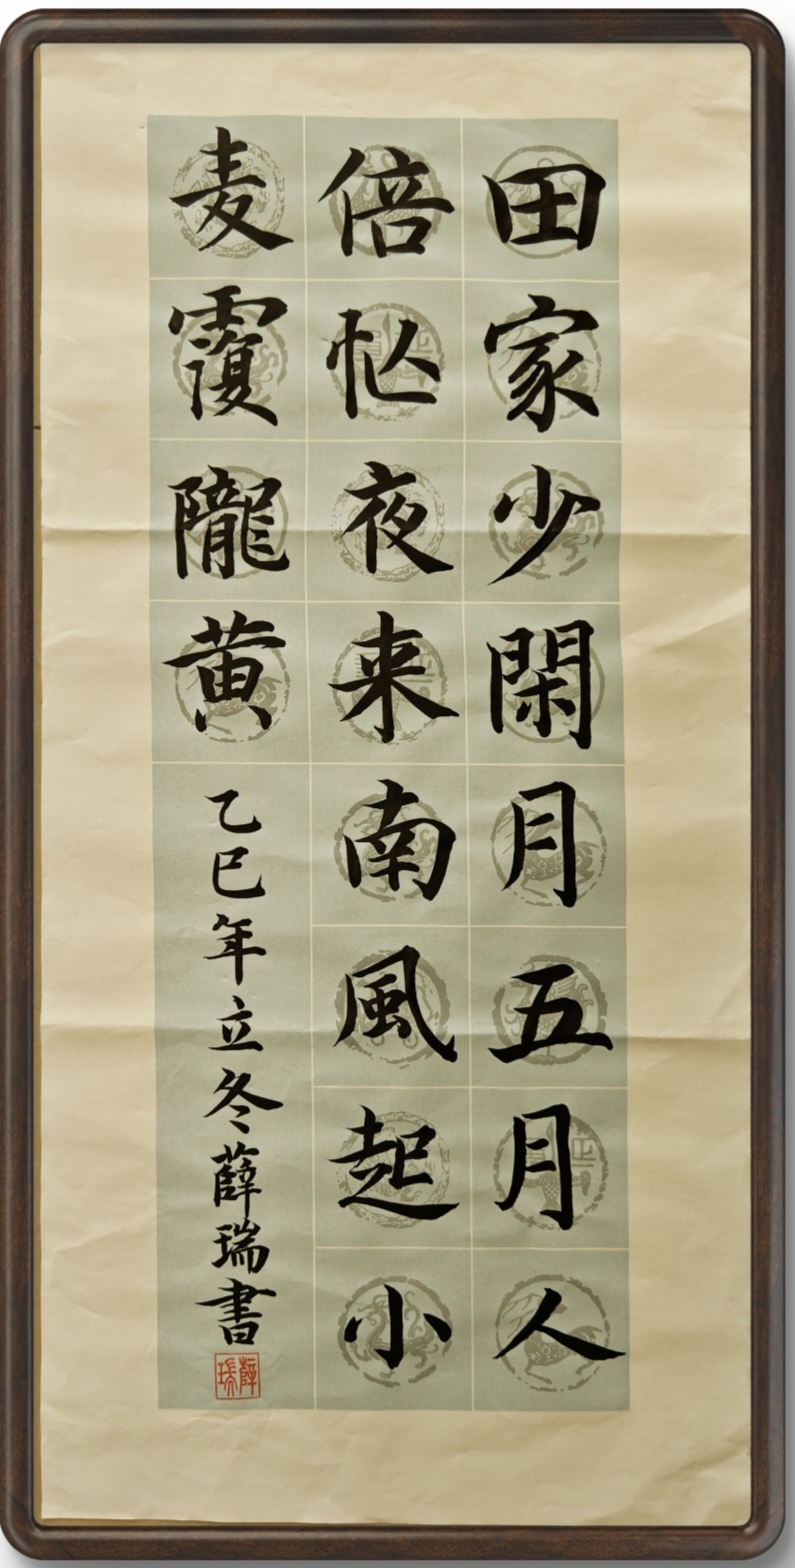 田家少閑月五月人
倍忙夜来南風起小
麦覆隴黄
乙巳年立冬薛瑞書
薛瑞